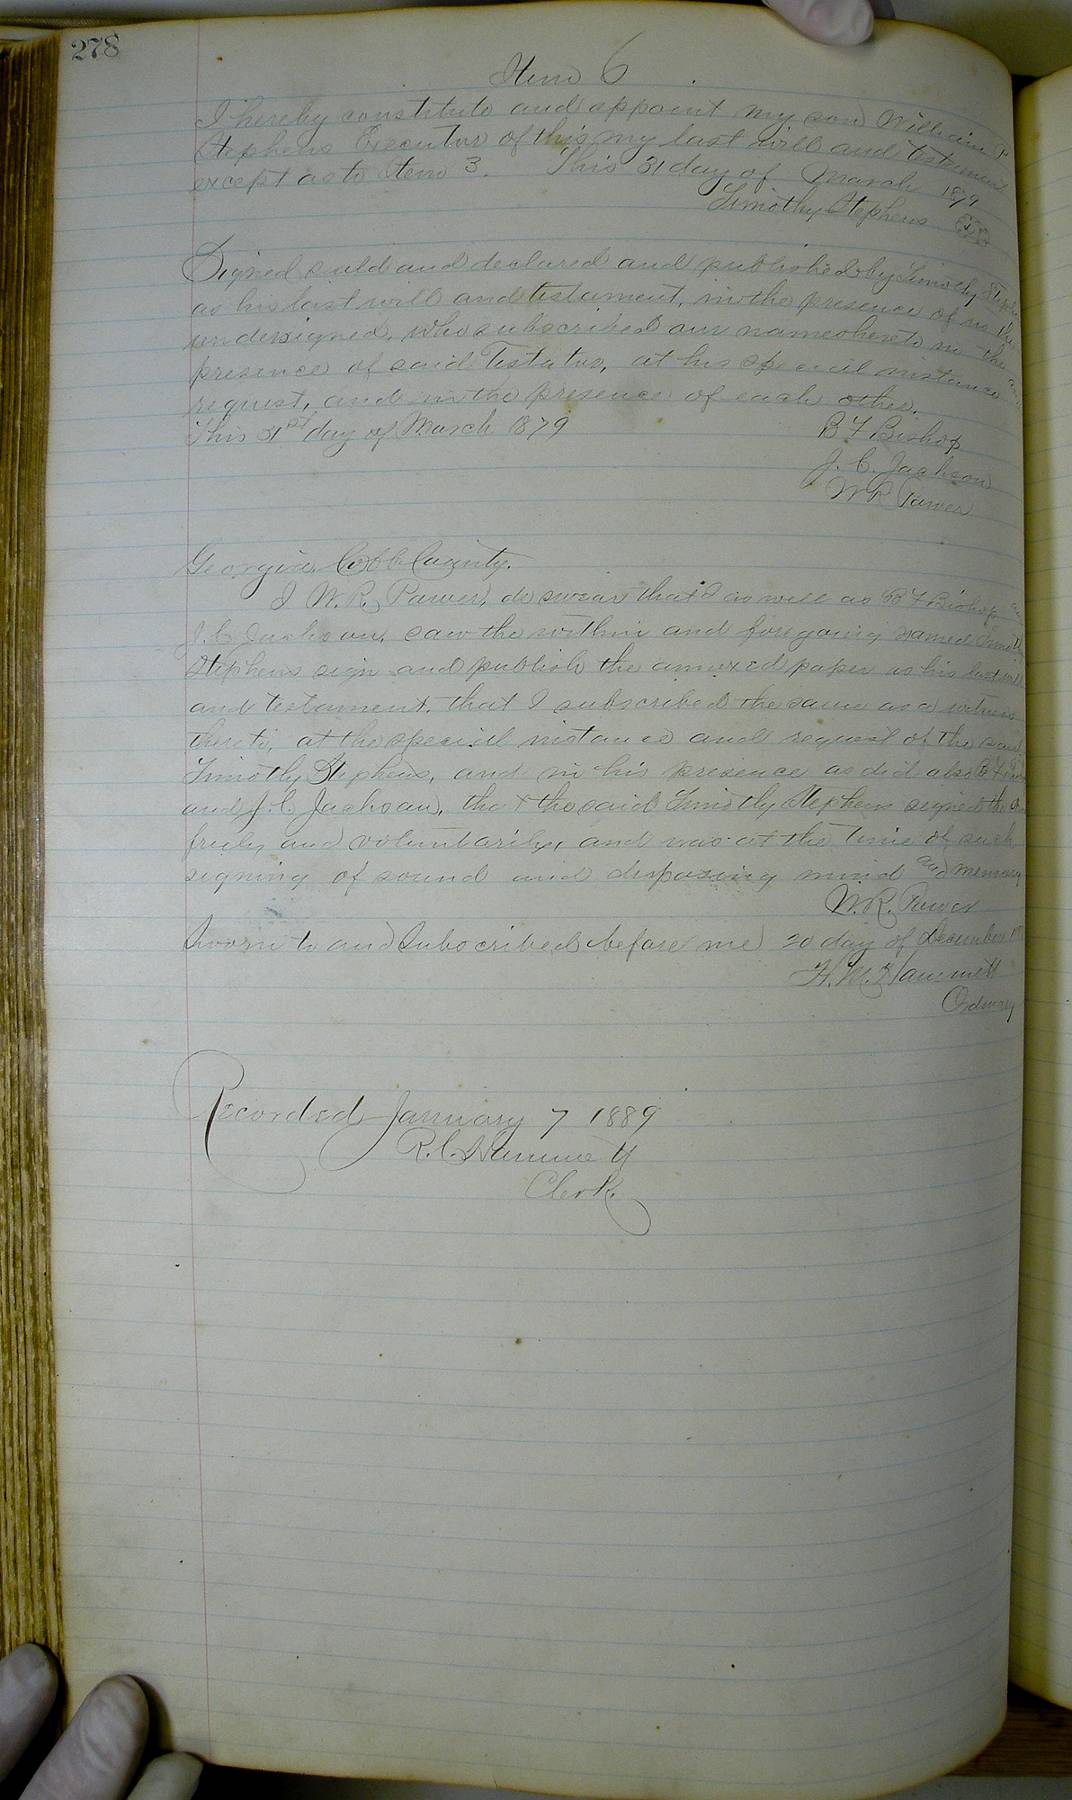 278
Item 6
I hereby constitute and appoint my son William
Stephens Executor of this my last will and testament
except as to Item 3. This 31 day of March 1879
Timothy Stephens
Signed seald and declared and published by Timothy Stephens
as his last will and testament, in the presence of us the
undersigned, who subscribed our names hereto in the
presence of said Testator, at his special instance
request, and in the presence of each other.
This 31st day of March 1879 B F Bishop
J. C. Jackson
W R Power
Georgia, Cobb County.
I W. R. Power, do swear that I as well as B F Bishop
J. C Jackson, saw the within and foregoing named
Stephens sign and publish the annexed paper as his last will
and testament, that I subscribed the same as a witness
thereto, at the special instance and request of the said
Timothy Stephens, and in his presence as did also
and J. C Jackson, that the said Timothy Stephens signed the
freely and voluntarily, and was at the time of such
signing of sound and disposing mind and memory
W. R. Power
Sworn to and Subscribed before me 20 day of December
H. M. Hammett
Ordinary
Recorded January 7 1889
R. C. Hammett
Clerk.